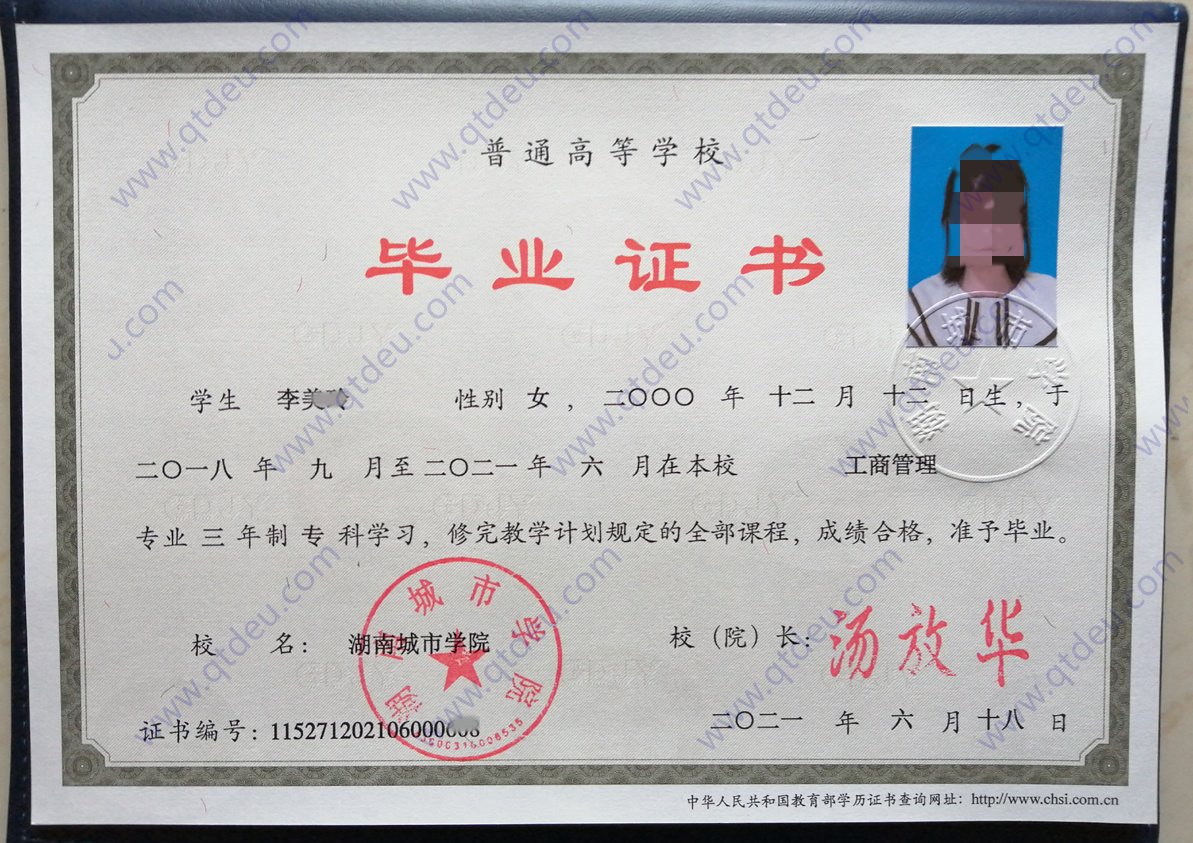 普通高等学校
毕业证书
学生 李美 性别 女 ，二〇〇〇 年 十二 月 十二 日生，于
二〇一八 年 九 月至 二〇二一 年 六 月在本校 工商管理
专业 三 年制 专 科学习，修完教学计划规定的全部课程，成绩合格，准予毕业。
校 名： 湖南城市学院
湖南城市学院
校（院）长： 汤放华
证书编号：115271202106000
二〇二一 年 六 月 十八 日
中华人民共和国教育部学历证书查询网址：http://www.chsi.com.cn
湖南城市学院
www.qtdeu.com